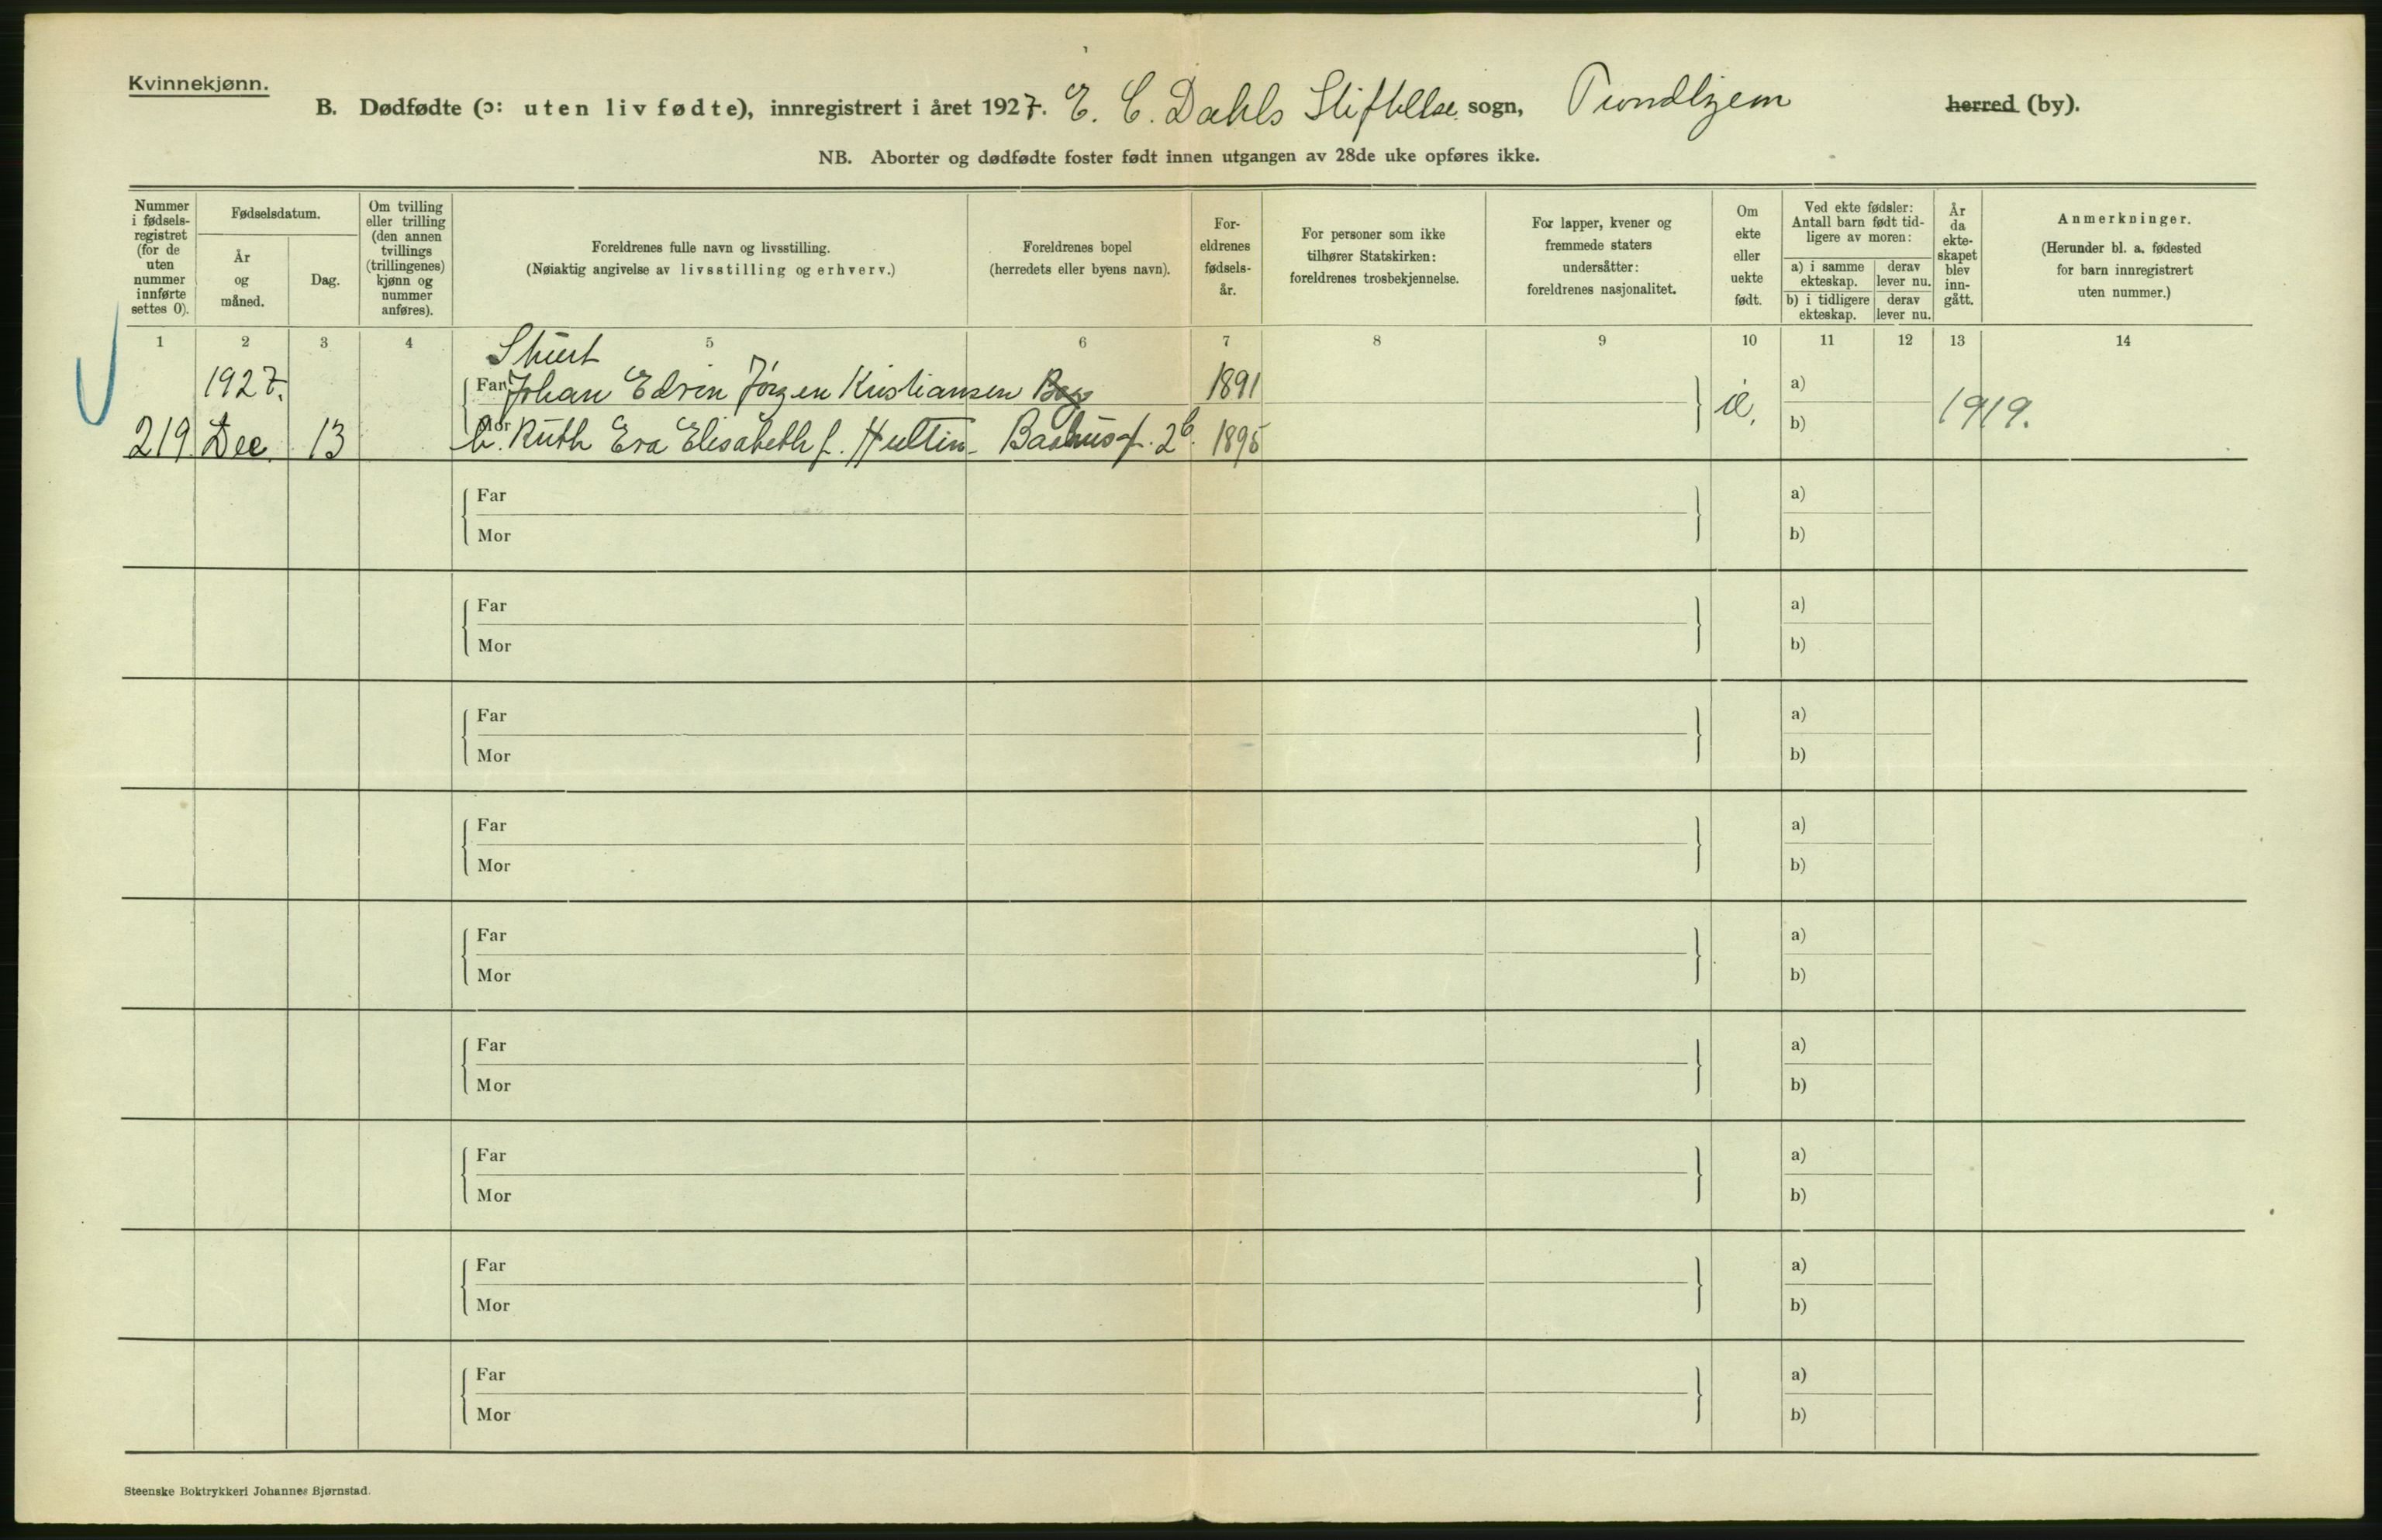 Kvinnekjønn.
B. Dødfødte (ɔ: uten liv fødte), innregistrert i året 1927. E. C. Dahls Stiftelse sogn, Trondhjem herred (by).
NB. Aborter og dødfødte foster født innen utgangen av 28de uke opføres ikke.
Nummer i fødsels-registret (for de uten nummer innførte settes 0).
Fødselsdatum.
År og måned.
Dag.
Om tvilling eller trilling (den annen tvillings (trillingenes) kjønn og nummer anføres).
Foreldrenes fulle navn og livsstilling.
(Nøiaktig angivelse av livsstilling og erhverv.)
Foreldrenes bopel
(herredets eller byens navn).
For-eldrenes fødsels-år.
For personer som ikke tilhører Statskirken: foreldrenes trosbekjennelse.
For lapper, kvener og fremmede staters undersåtter: foreldrenes nasjonalitet.
Om ekte eller uekte født.
Ved ekte fødsler: Antall barn født tid-ligere av moren:
a) i samme ekteskap.
derav lever nu.
b) i tidligere ekteskap.
derav lever nu.
År da ekte-skapet blev inn-gått.
Anmerkninger.
(Herunder bl. a. fødested for barn innregistrert uten nummer.)
1 2 3 4 5 6 7 8 9 10 11 12 13 14
1927. Far Johan Edvin Jørgen Kristiansen 1891 a)
219. Dec. 13 Mor Ruth Eva Elisabeth f. Hultin 2b. 1895 b) 1919.
Far a)
Mor b)
Far a)
Mor b)
Far a)
Mor b)
Far a)
Mor b)
Far a)
Mor b)
Far a)
Mor b)
Far a)
Mor b)
Far a)
Mor b)
Far a)
Mor b)
Steenske Boktrykkeri Johannes Bjørnstad.